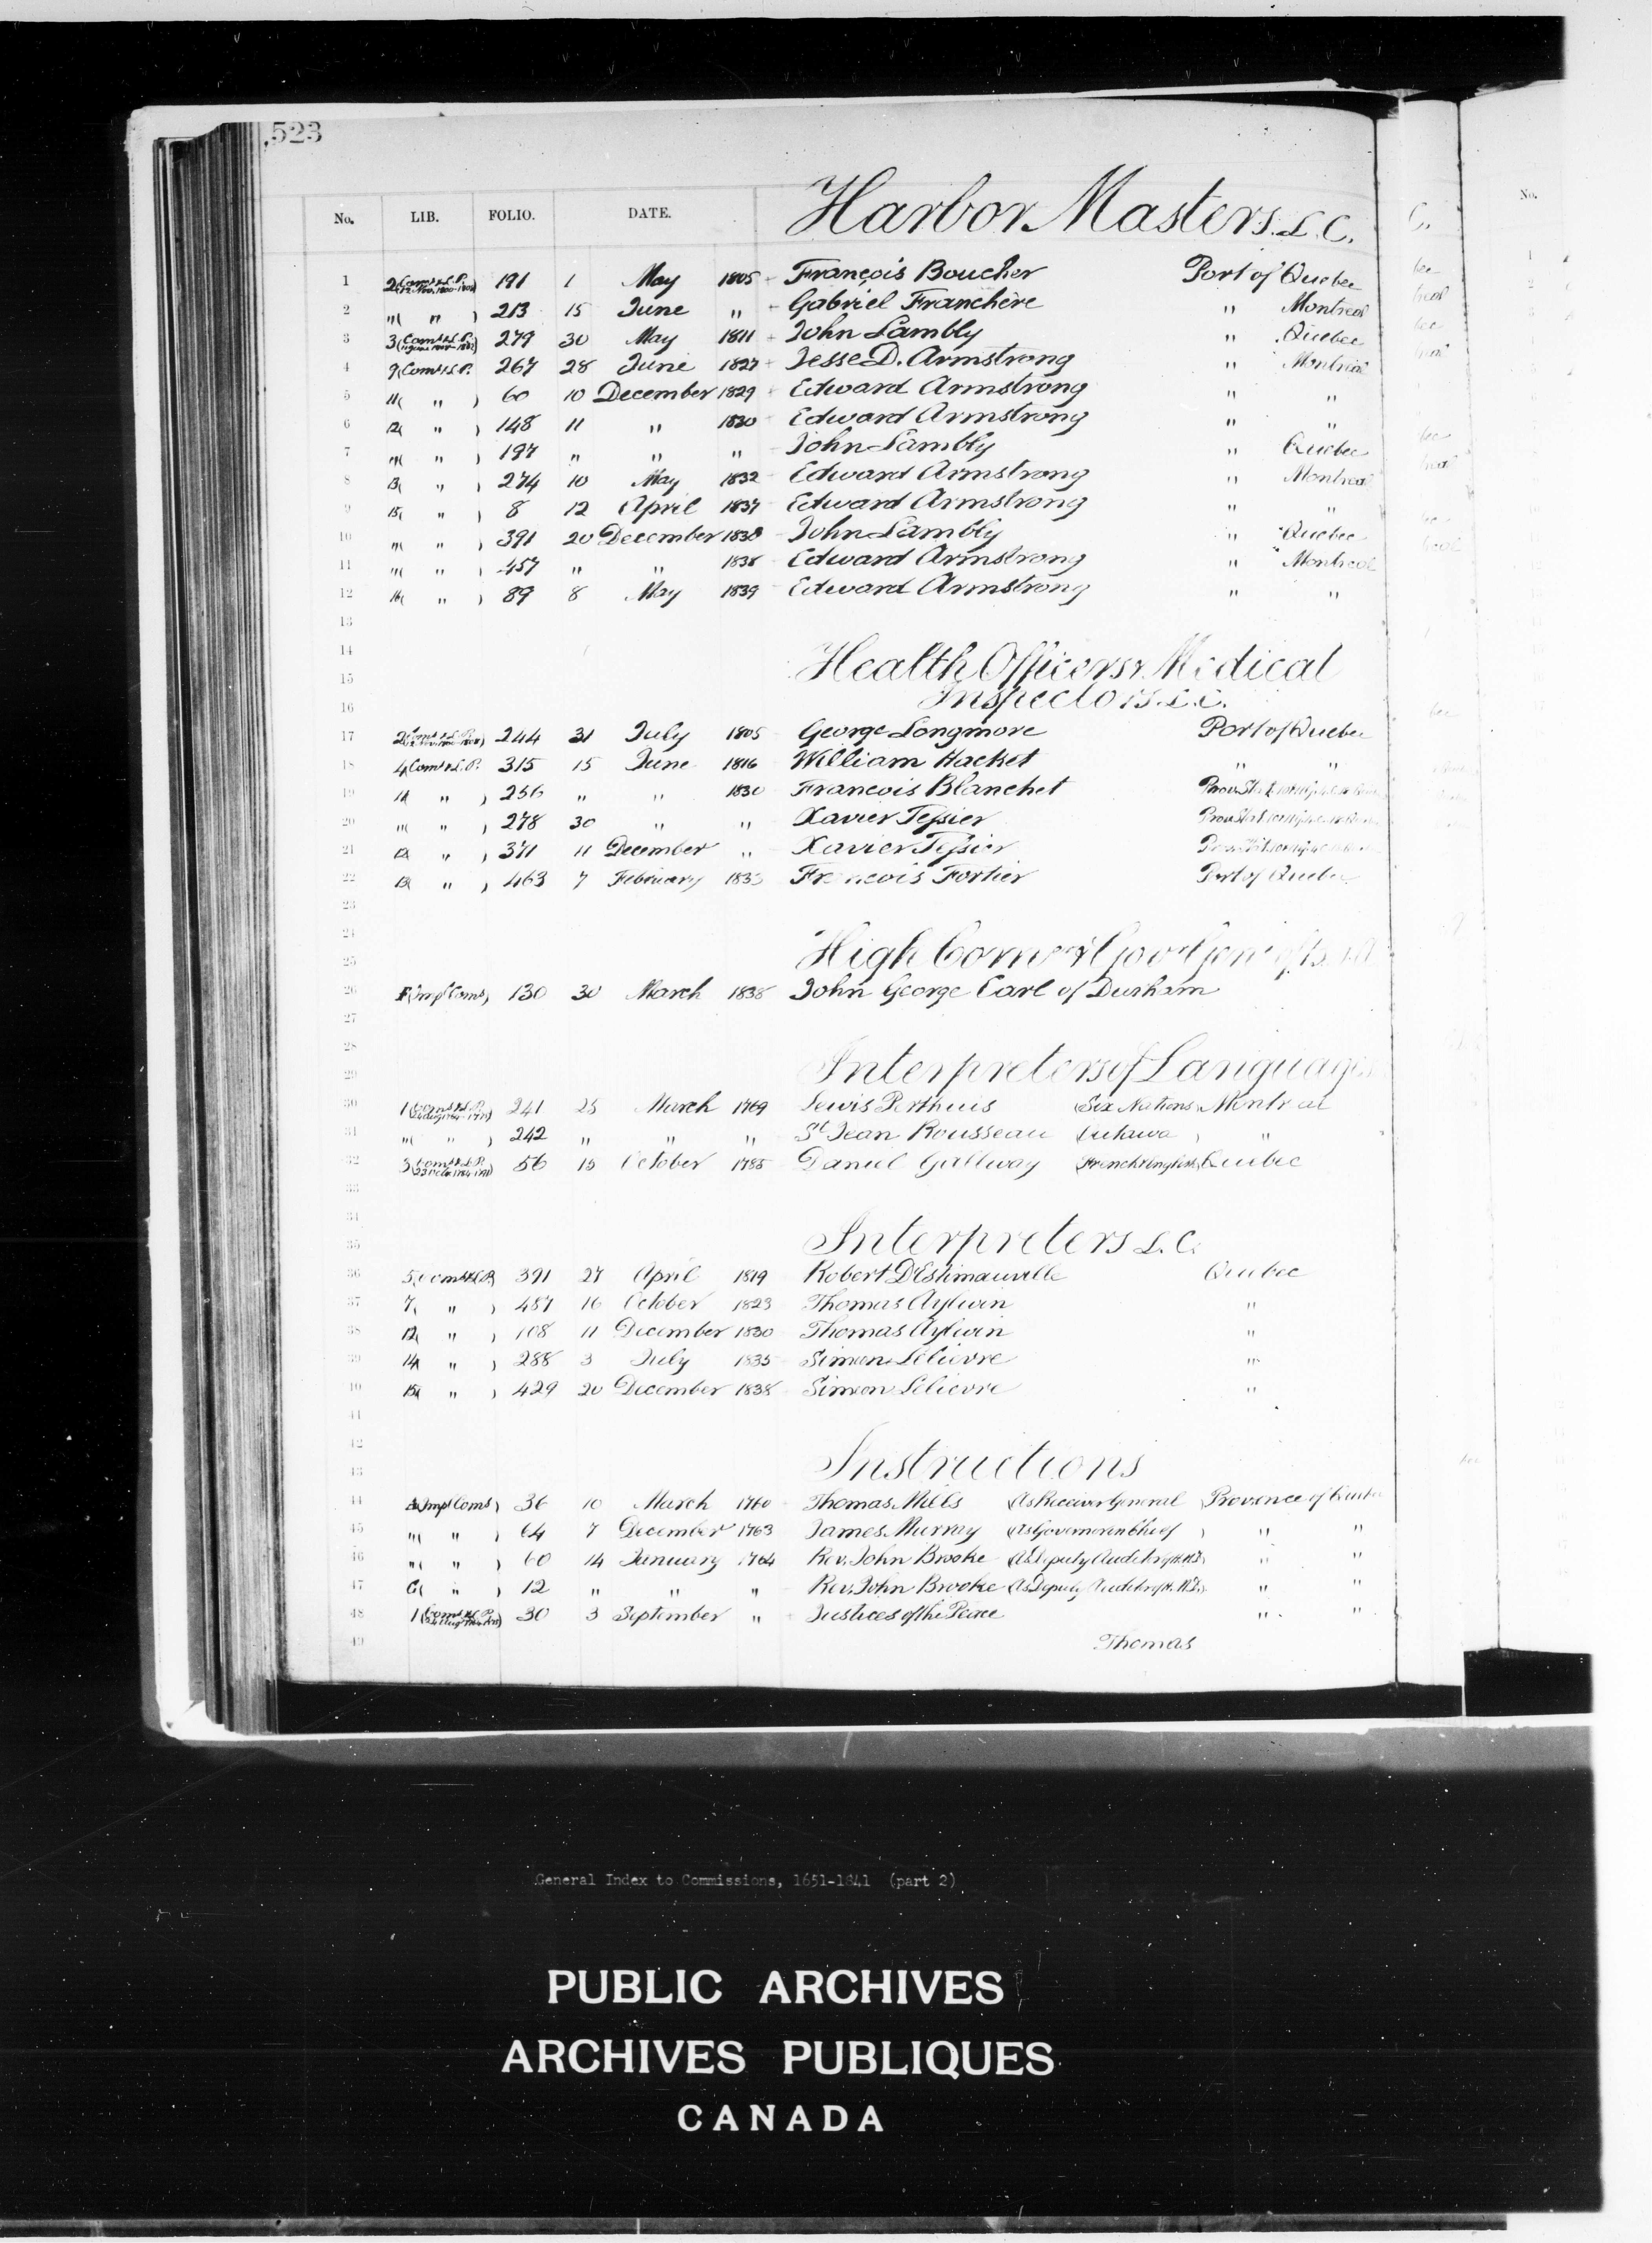 523
No. LIB. FOLIO. DATE. Harbor Masters. L.C.
1 2 (Coms & L.P. 191 1 May 1805 François Boucher Port of Quebec
2 "( " ) 213 15 June " Gabriel Franchère " Montreal
3 3 (Coms & L.P. 279 30 May 1811 John Lambly " Quebec
4 9 (Coms & L.P. 267 28 June 1827 Jesse D. Armstrong " Montreal
5 11( " ) 60 10 December 1829 Edward Armstrong " "
6 12( " ) 148 11 " 1830 Edward Armstrong " "
7 "( " ) 197 " " " John Lambly " Quebec
8 13( " ) 274 10 May 1832 Edward Armstrong " Montreal
9 15( " ) 8 12 April 1837 Edward Armstrong " "
10 "( " ) 391 20 December 1838 John Lambly " Quebec
11 "( " ) 457 " " 1838 Edward Armstrong " Montreal
12 16( " ) 89 8 May 1839 Edward Armstrong " "
13
14
15 Health Officers & Medical
16 Inspectors. L.C.
17 2 (Coms & L.P. 244 31 July 1805 George Longmore Port of Quebec
18 4 (Coms & L.P. 315 15 June 1816 William Hacket " "
19 11( " ) 256 " " 1830 Francois Blanchet
20 "( " ) 278 30 " " Xavier Tessier
21 12( " ) 371 11 December " Xavier Tessier
22 13( " ) 463 7 February 1833 Francois Fortier Port of Quebec
23
24
25 High Comr & Gov Genl of
26 (Impl Coms) 130 30 March 1838 John George Earl of Durham
27
28
29 Interpreters of Languages
30 1 (Coms & L.P. 241 25 March 1769 Lewis Perthuis (Six Nations) Montreal
31 "( " ) 242 " " " St Jean Rousseau (Ottawa ) "
32 3 (Coms & L.P. 56 15 October 1785 Daniel Gallway (French & English) Quebec
33
34
35 Interpreters L.C.
36 5 (Coms & L.P.) 391 27 April 1819 Robert D'Estimauville Quebec
37 7( " ) 487 16 October 1823 Thomas Aylwin "
38 12( " ) 108 11 December 1830 Thomas Aylwin "
39 14( " ) 288 3 July 1835 Simeon Lelievre "
40 15( " ) 429 20 December 1838 Simeon Lelievre "
41
42
43 Instructions
44 (Impl Coms) 36 10 March 1760 Thomas Mills (As Receiver General) Province of Quebec
45 "( " ) 64 7 December 1763 James Murray (As Governor in Chief ) " "
46 "( " ) 60 14 January 1764 Rev. John Brooke (As Deputy Auditor " "
47 C( " ) 12 " " " Rev. John Brooke (As Deputy Auditor " "
48 1 (Coms & L.P. 30 3 September " Justices of the Peace " "
49 Thomas
General Index to Commissions, 1651-1841 (part 2)
PUBLIC ARCHIVES
ARCHIVES PUBLIQUES
CANADA